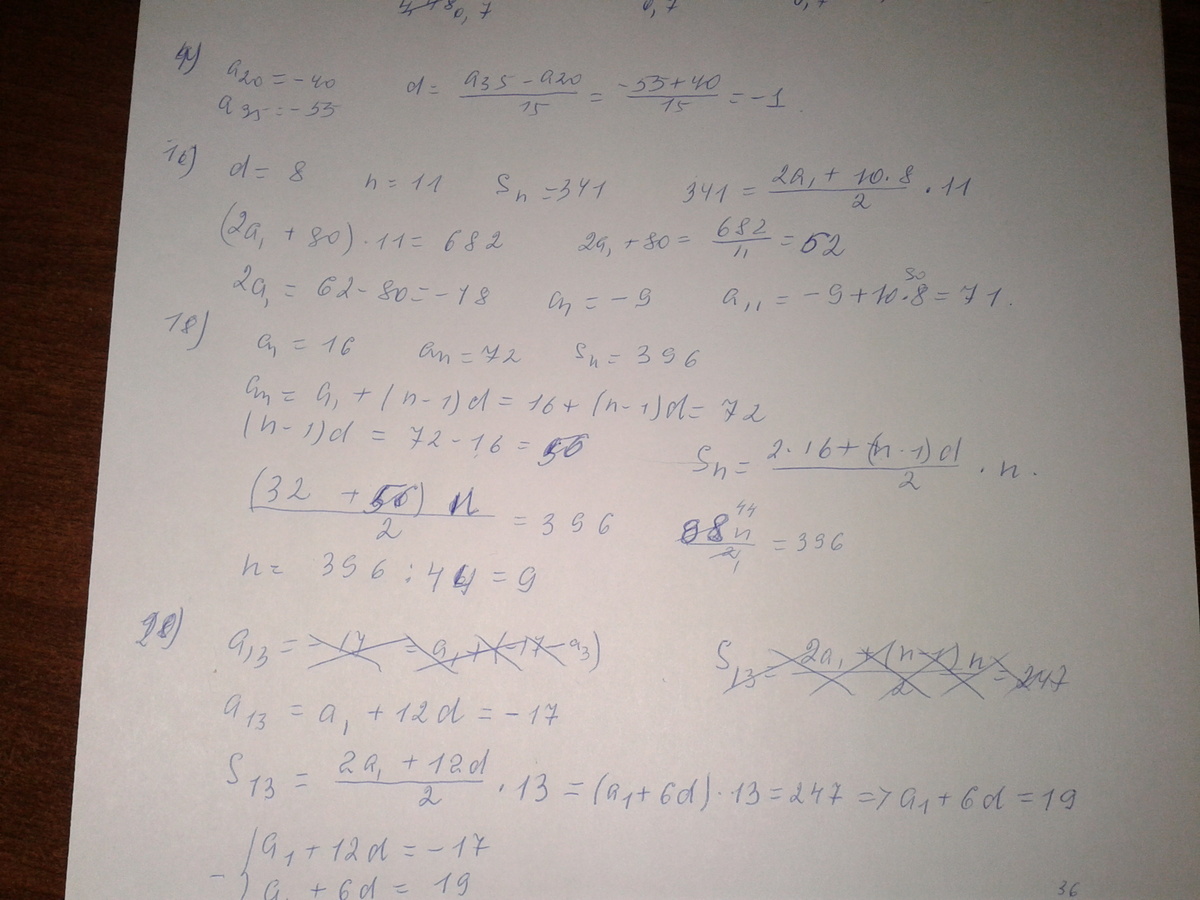 0,7 0,7 0,7
4) a20 = -40 d = (a35 - a20)/15 = (-55+40)/15 = -1.
a35 = -55
16) d = 8 n = 11 Sn = 341 341 = (2a1 + 10·8)/2 · 11
(2a1 + 80)·11 = 682 2a1 + 80 = 682/11 = 52
2a1 = 62 - 80 = -18 a1 = -9 a11 = -9 + 10·8 = 71. 80
18) a1 = 16 an = 72 Sn = 396
an = a1 + (n-1)d = 16 + (n-1)d = 72
(n-1)d = 72 - 16 = 56 Sn = (2·16 + (n-1)d)/2 · n.
(32 + 56) n/2 = 396 88n/2 = 396 44 1
n = 396 : 44 = 9
20) a13 = -17 = a1 + (-17 - a3) S13 = (2a1 + (n-1) n)/2 = 247
a13 = a1 + 12d = -17
S13 = (2a1 + 12d)/2 · 13 = (a1 + 6d)·13 = 247 => a1 + 6d = 19
a1 + 12d = -17
- a1 + 6d = 19
36